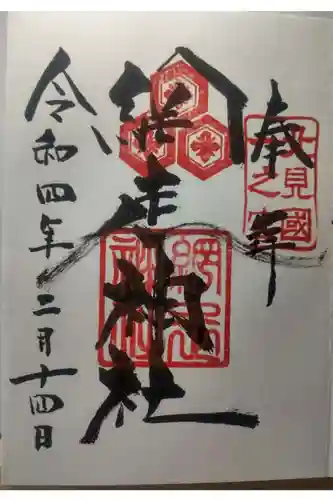 奉拝
北見國
一之宮
網走神社
網走
神社
令和四年二月十四日